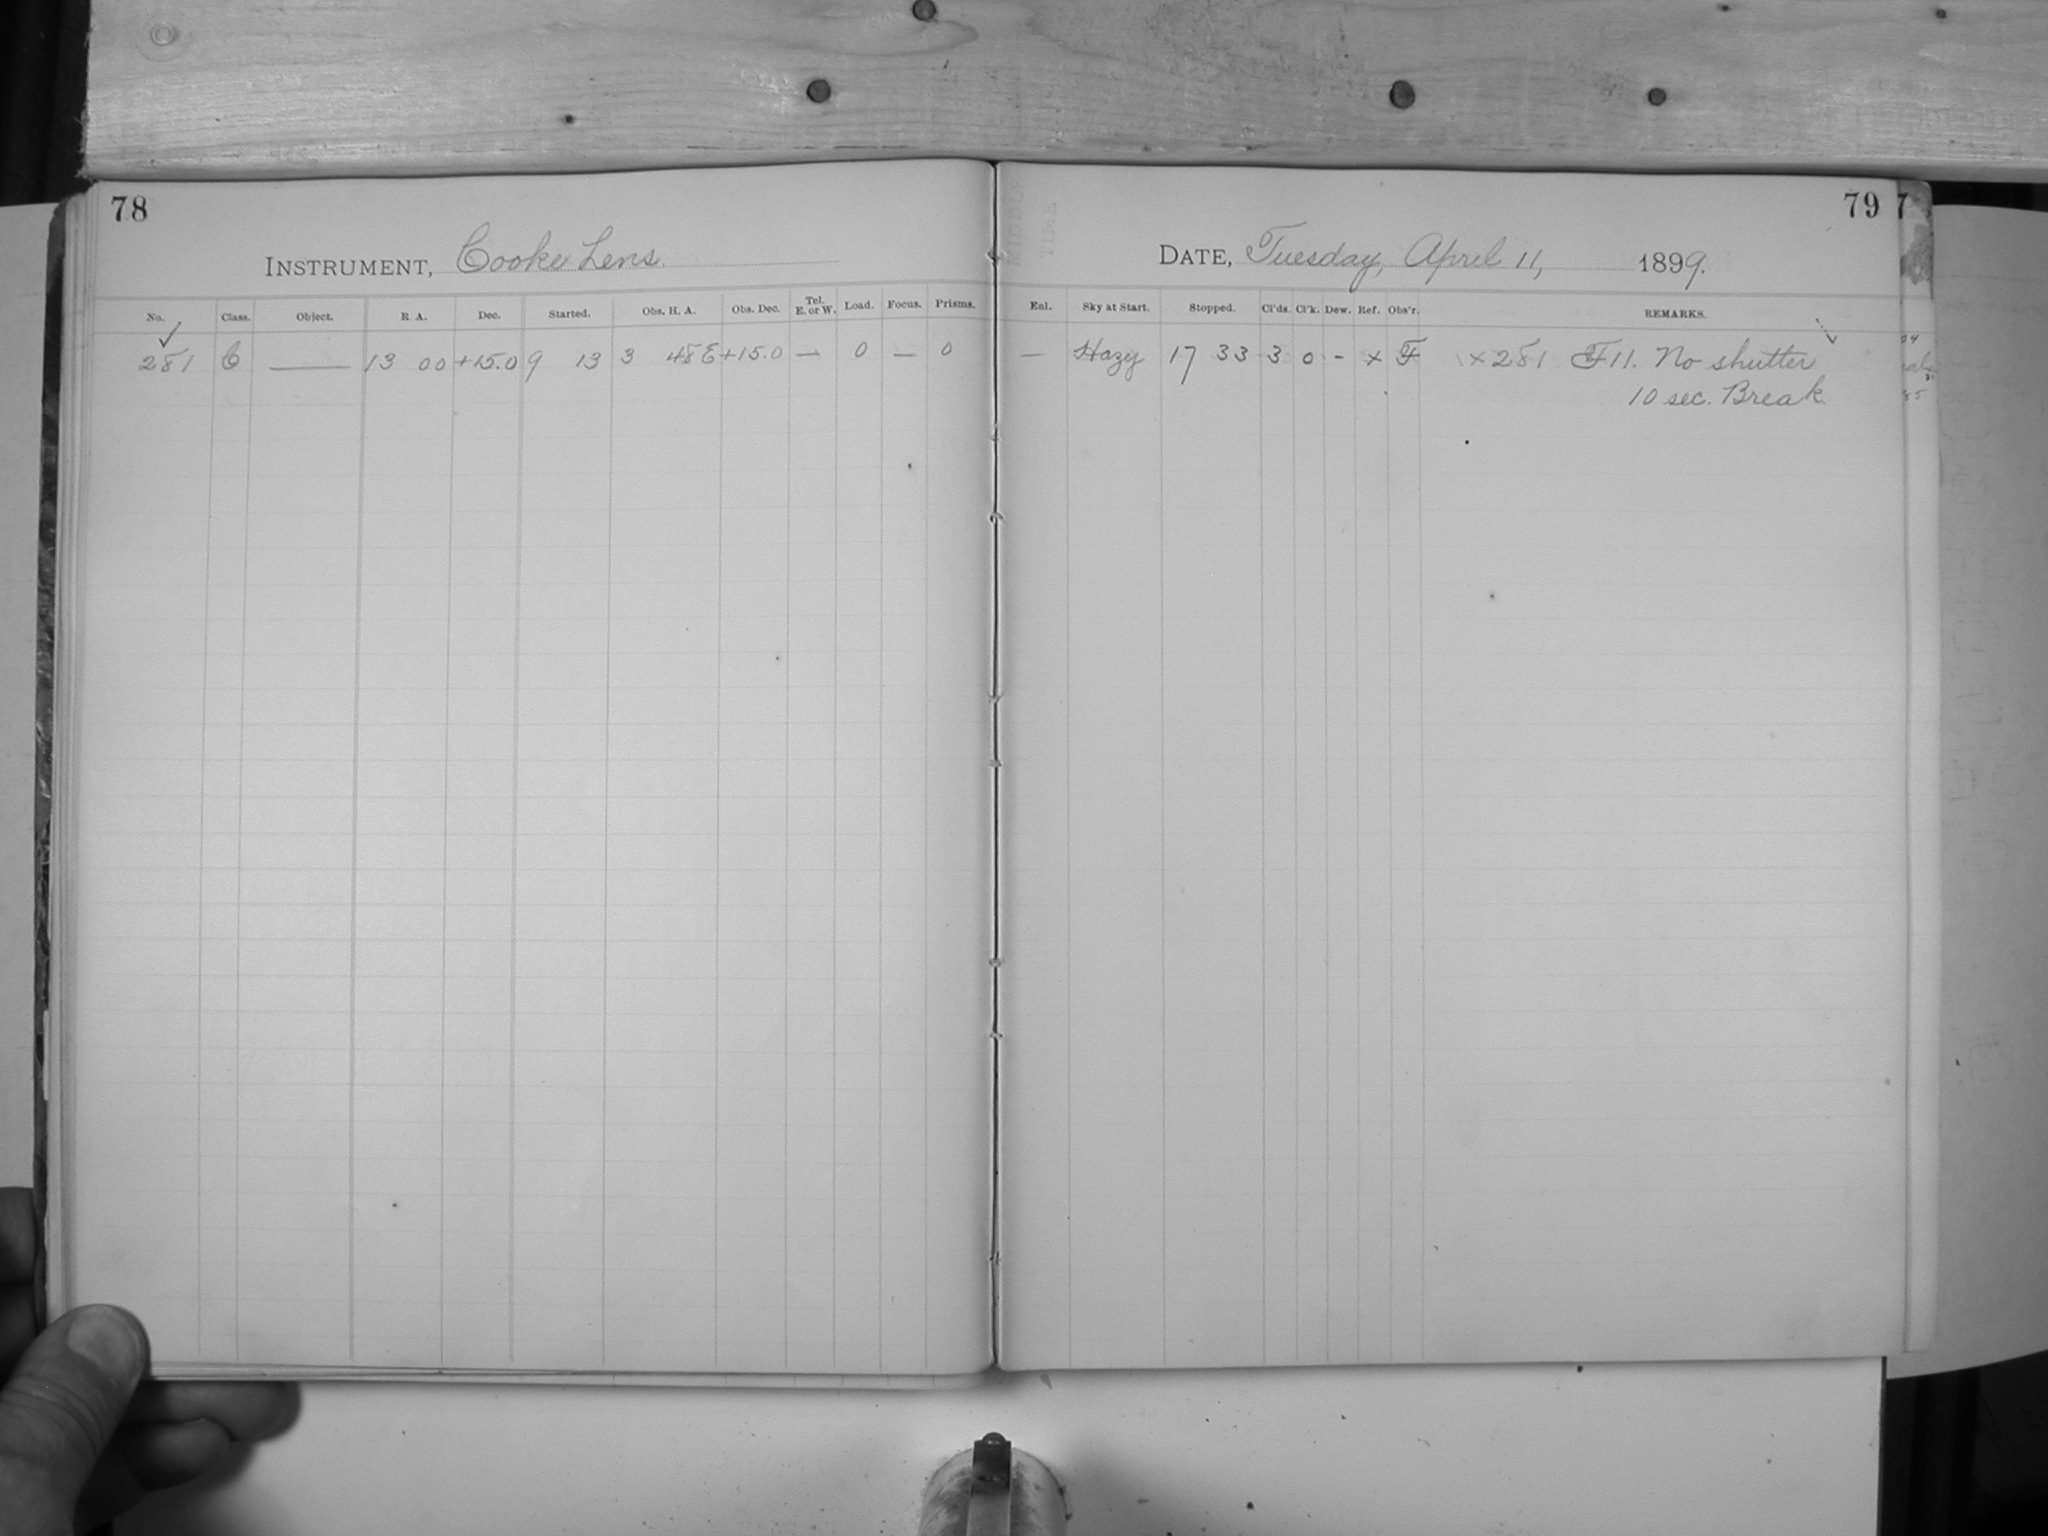 78
INSTRUMENT, Cooke Lens.
No. Class. Object. R. A. Dec. Started. Obs. H. A. Obs. Dec. Tel. E. or W. Load. Focus. Prisms.
281 C —— 13 00 +15.0 9 13 3 48 E +15.0 — 0 — 0
79
DATE, Tuesday, April 11, 1899.
Enl. Sky at Start. Stopped. Cl'ds. Cl'k. Dew. Ref. Obs'r. REMARKS.
— Hazy 17 33 3 0 - x F x 281 F 11. No shutter
10 sec. Break